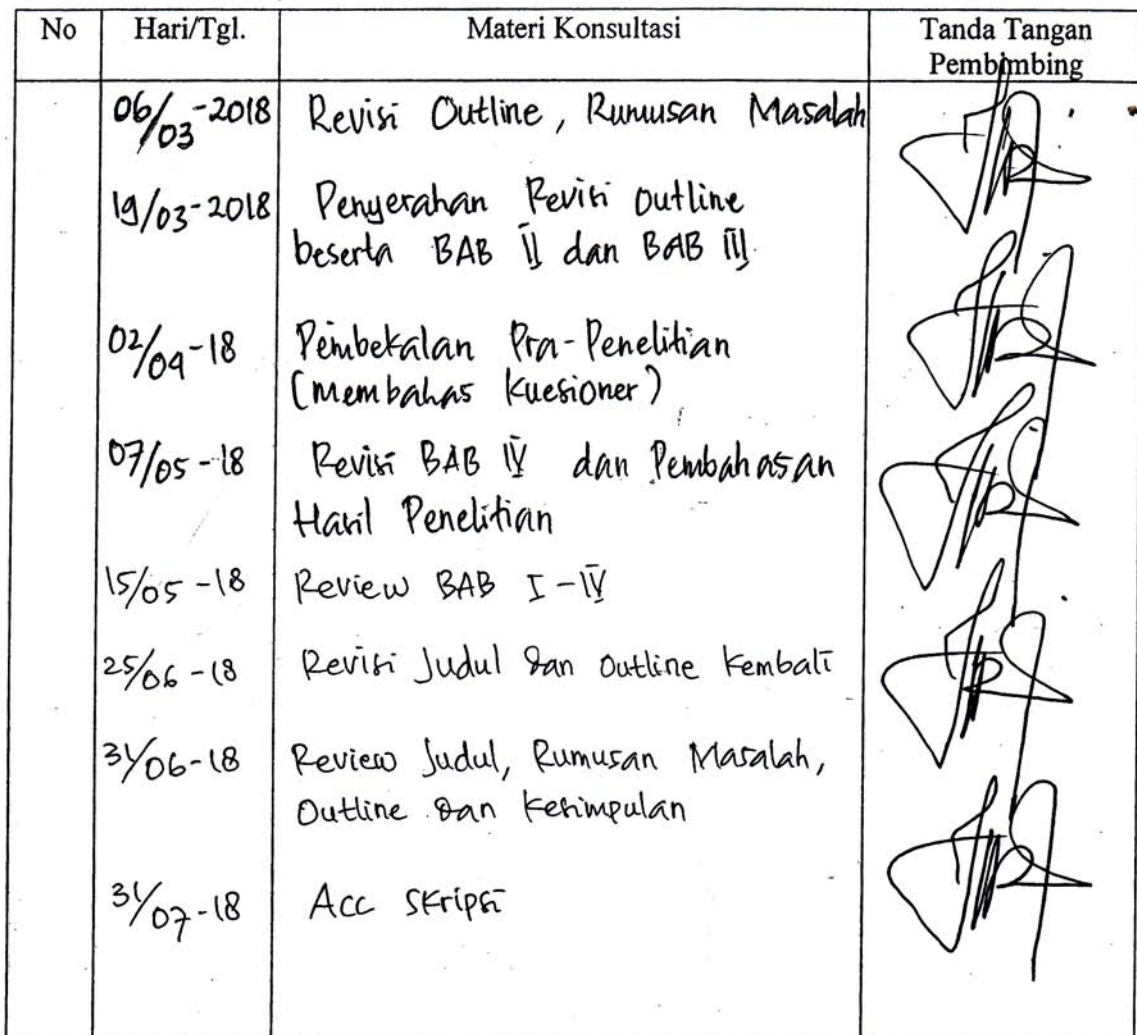 No Hari/Tgl. Materi Konsultasi Tanda Tangan
Pembimbing
06/03-2018 Revisi Outline, Rumusan Masalah
19/03-2018 Penyerahan Revisi Outline
beserta BAB II dan BAB III
02/04-18 Pembekalan Pra-Penelitian
(membahas kuesioner)
07/05-18 Revisi BAB IV dan Pembahasan
Hasil Penelitian
15/05-18 Review BAB I-IV
25/06-18 Revisi Judul dan Outline Kembali
31/06-18 Review Judul, Rumusan Masalah,
Outline dan Kesimpulan
31/07-18 Acc Skripsi